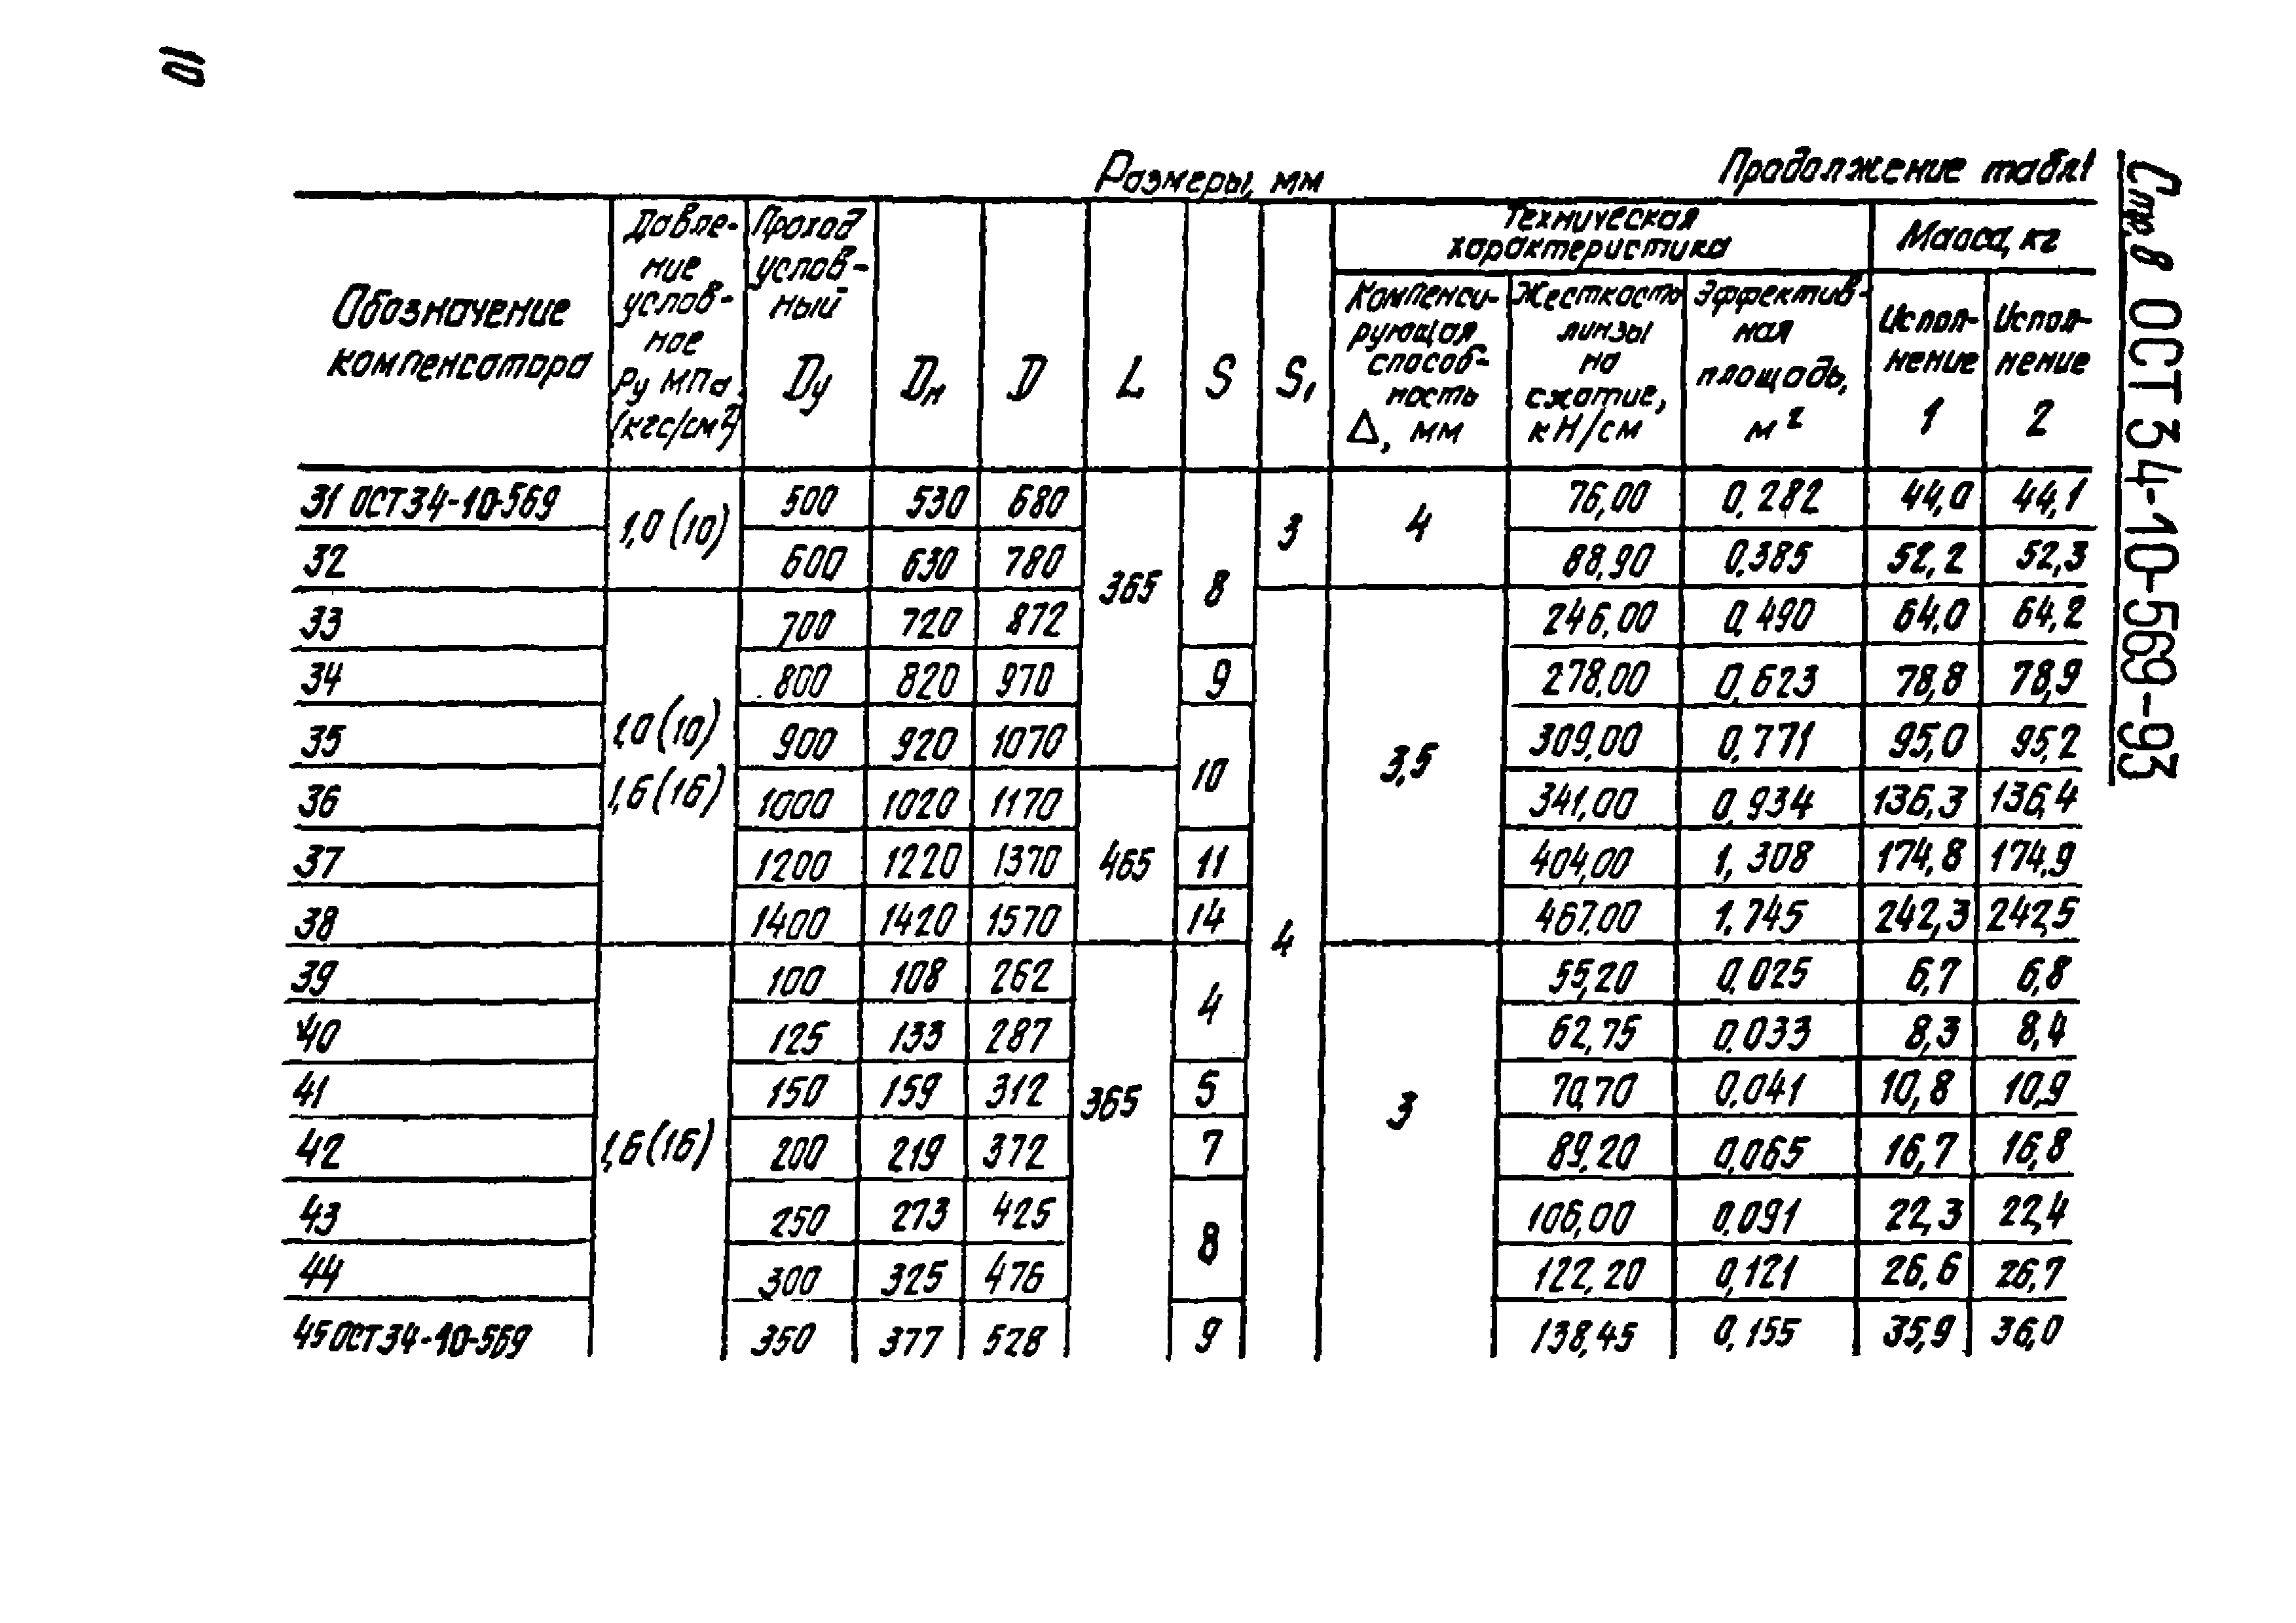 10
Размеры, мм
Продолжение табл1
Стр. 8 ОСТ 34-10-569-93
Обозначение
компенсатора
Давле-
ние
услов-
ное
Ру МПа
(кгс/см²)
Проход
услов-
ный
Dу
Dн
D
L
S
S₁
Техническая
характеристика
Масса, кг
Компенси-
рующая
способ-
ность
Δ, мм
Жесткость
линзы
на
сжатие,
кН/см
Эффектив-
ная
площадь,
м²
Испол-
нение
1
Испол-
нение
2
31 ОСТ34-10-569 1,0 (10) 500 530 680 365 8 3 4 76,00 0,282 44,0 44,1
32 600 630 780 88,90 0,385 52,2 52,3
33 1,0 (10) 1,6 (16) 700 720 872 4 3,5 246,00 0,490 64,0 64,2
34 800 820 970 9 278,00 0,623 78,8 78,9
35 900 920 1070 10 309,00 0,771 95,0 95,2
36 1000 1020 1170 465 341,00 0,934 136,3 136,4
37 1200 1220 1370 11 404,00 1,308 174,8 174,9
38 1400 1420 1570 14 467,00 1,745 242,3 242,5
39 1,6 (16) 100 108 262 365 4 3 55,20 0,025 6,7 6,8
40 125 133 287 62,75 0,033 8,3 8,4
41 150 159 312 5 70,70 0,041 10,8 10,9
42 200 219 372 7 89,20 0,065 16,7 16,8
43 250 273 425 8 106,00 0,091 22,3 22,4
44 300 325 476 122,20 0,121 26,6 26,7
45 ОСТ34-10-569 350 377 528 9 138,45 0,155 35,9 36,0